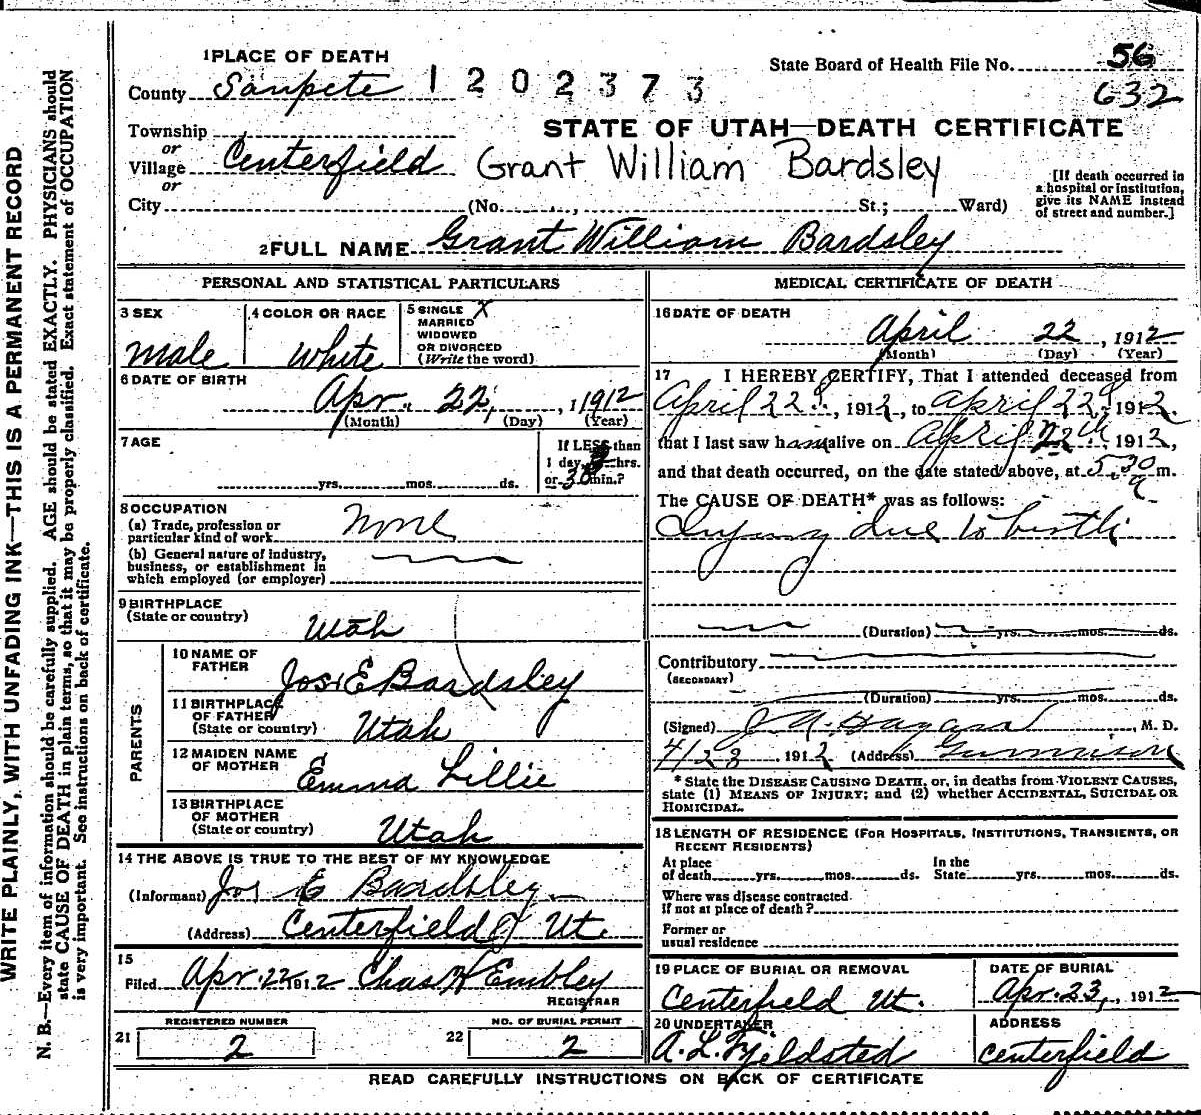 1 PLACE OF DEATH
County Sanpete 1202373
State Board of Health File No. 56
632
STATE OF UTAH—DEATH CERTIFICATE
Township
or
Village Centerfield Grant William Bardsley
or
City (No. , St.; Ward)
[If death occurred in
a hospital or institution,
give its NAME instead
of street and number.]
2 FULL NAME Grant William Bardsley
PERSONAL AND STATISTICAL PARTICULARS
3 SEX
male
4 COLOR OR RACE
white
5 SINGLE X
MARRIED
WIDOWED
OR DIVORCED
(Write the word)
6 DATE OF BIRTH
Apr. 22, , 1912
(Month) (Day) (Year)
7 AGE
yrs. mos. ds.
If LESS than
1 day, 3 hrs.
or 30 min.?
8 OCCUPATION
(a) Trade, profession or
particular kind of work None
(b) General nature of industry,
business, or establishment in
which employed (or employer)
9 BIRTHPLACE
(State or country) Utah
PARENTS
10 NAME OF
FATHER Jos E Bardsley
11 BIRTHPLACE
OF FATHER
(State or country) Utah
12 MAIDEN NAME
OF MOTHER Emma Lillie
13 BIRTHPLACE
OF MOTHER
(State or country) Utah
14 THE ABOVE IS TRUE TO THE BEST OF MY KNOWLEDGE
(Informant) Jos E Bardsley
(Address) Centerfield Ut.
15
Filed Apr. 22 1912 Chas H Embley
REGISTRAR
21 REGISTERED NUMBER
2
22 NO. OF BURIAL PERMIT
2
MEDICAL CERTIFICATE OF DEATH
16 DATE OF DEATH
April 22 , 1912
(Month) (Day) (Year)
17 I HEREBY CERTIFY, That I attended deceased from
April 22d, 1912, to April 22d 1912.
that I last saw him alive on April 22th 1912,
and that death occurred, on the date stated above, at 5.30 a m.
The CAUSE OF DEATH* was as follows:
Injury due to birth
(Duration) yrs. mos. ds.
Contributory
(SECONDARY)
(Duration) yrs. mos. ds.
(Signed) J A Hagan , M. D.
4/23 . 1912 (Address) Gunnison
* State the DISEASE CAUSING DEATH, or, in deaths from VIOLENT CAUSES,
state (1) MEANS OF INJURY; and (2) whether ACCIDENTAL, SUICIDAL OR
HOMICIDAL.
18 LENGTH OF RESIDENCE (FOR HOSPITALS, INSTITUTIONS, TRANSIENTS, OR
RECENT RESIDENTS)
At place In the
of death yrs. mos. ds. State yrs. mos. ds.
Where was disease contracted.
If not at place of death ?
Former or
usual residence
19 PLACE OF BURIAL OR REMOVAL
Centerfield Ut.
DATE OF BURIAL
Apr. 23, , 1912
20 UNDERTAKER
A. L. Fjeldsted
ADDRESS
Centerfield
READ CAREFULLY INSTRUCTIONS ON BACK OF CERTIFICATE
WRITE PLAINLY, WITH UNFADING INK—THIS IS A PERMANENT RECORD
N. B.—Every item of information should be carefully supplied. AGE should be stated EXACTLY. PHYSICIANS should
state CAUSE OF DEATH in plain terms, so that it may be properly classified. Exact statement of OCCUPATION
is very important. See instructions on back of certificate.